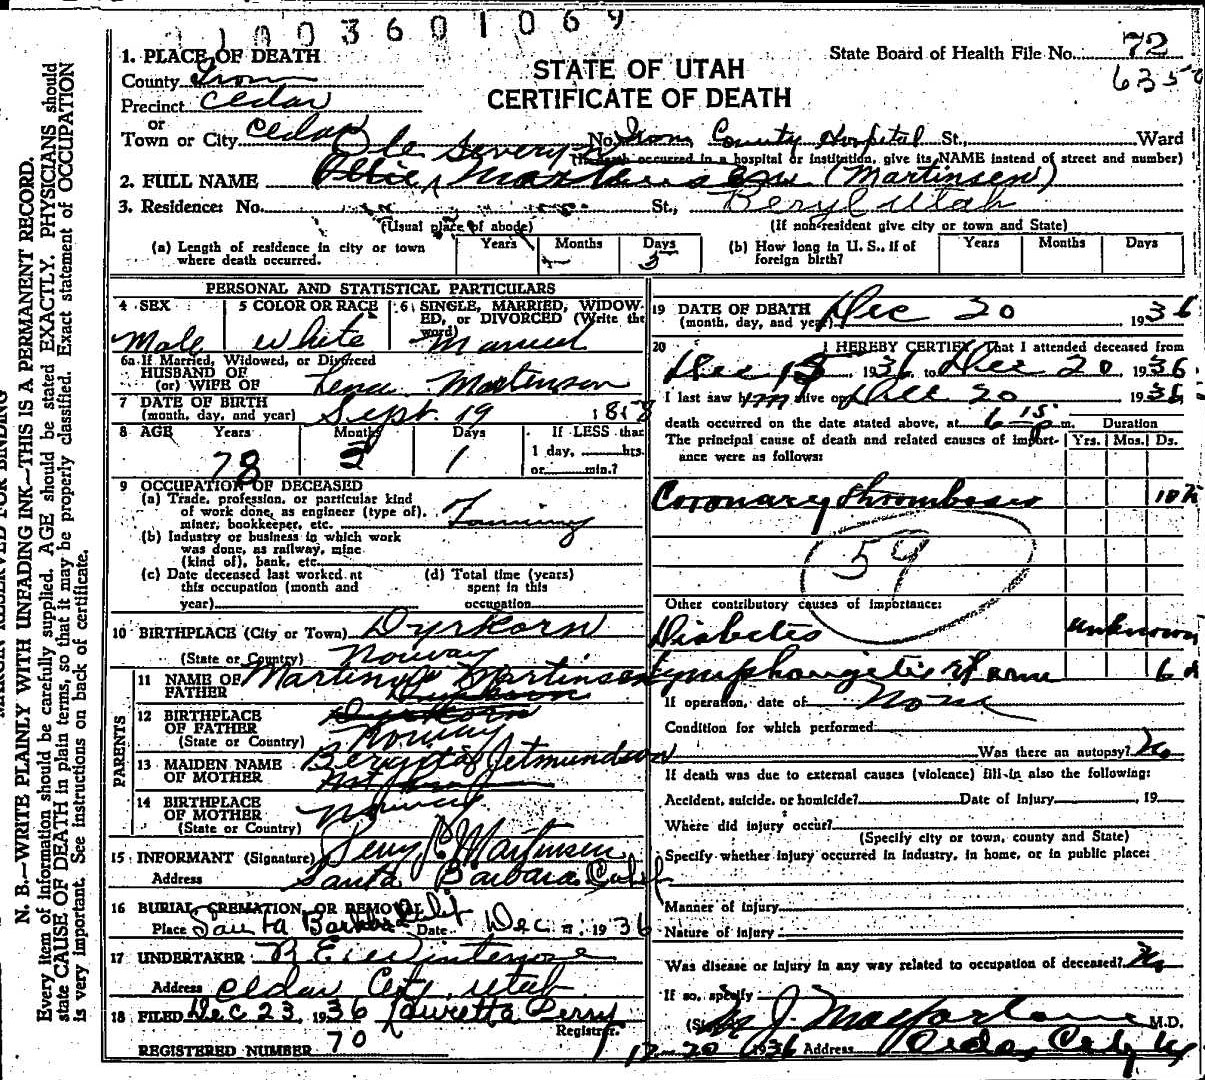 1003601069
1. PLACE OF DEATH
County Iron
Precinct Cedar
or
Town or City Cedar
STATE OF UTAH
CERTIFICATE OF DEATH
State Board of Health File No. 72
635
No. Iron County Hospital St., Ward
(If death occurred in a hospital or institution, give its NAME instead of street and number)
Ole Severyn
2. FULL NAME Ollie (Martinsen)
3. Residence: No. St., Beryl Utah
(Usual place of abode) (If non-resident give city or town and State)
(a) Length of residence in city or town where death occurred. Years Months - Days 5
(b) How long in U. S., if of foreign birth? Years Months Days
PERSONAL AND STATISTICAL PARTICULARS
4 SEX Male
5 COLOR OR RACE White
6 SINGLE, MARRIED, WIDOWED, or DIVORCED (Write the word) Married
6a If Married, Widowed, or Divorced
HUSBAND OF
(or) WIFE OF Lena Martinson
7 DATE OF BIRTH
(month, day, and year) Sept. 19 1858
8 AGE Years 78 Months 3 Days 1 If LESS than
1 day, hrs.
or min.?
9 OCCUPATION OF DECEASED
(a) Trade, profession, or particular kind
of work done, as engineer (type of),
miner, bookkeeper, etc. Farming
(b) Industry or business in which work
was done, as railway, mine
(kind of), bank, etc.
(c) Date deceased last worked at
this occupation (month and
year)
(d) Total time (years)
spent in this
occupation
10 BIRTHPLACE (City or Town) Dyrkorn
(State or Country) Norway
PARENTS
11 NAME OF FATHER Martinus Martinsen
12 BIRTHPLACE OF FATHER Dyrkorn
(State or Country) Norway
13 MAIDEN NAME OF MOTHER Jetmundson
14 BIRTHPLACE OF MOTHER
(State or Country) Norway
15 INFORMANT (Signature) Perry Martinsen
Address Santa Barbara Calif
16 BURIAL, CREMATION, OR REMOVAL
Place Santa Barbara Calif Date Dec 1936
17 UNDERTAKER
Address Cedar City, Utah
18 FILED Dec 23, 1936 Lauretta Perry
Registrar
REGISTERED NUMBER 70
19 DATE OF DEATH
(month, day, and year) Dec 20 1936
20 I HEREBY CERTIFY, That I attended deceased from
Dec 15 1936, to Dec 20 1936.
I last saw him alive on Dec 20 1936
death occurred on the date stated above, at 6 15 p m.
The principal cause of death and related causes of importance were as follows:
Duration
Yrs. Mos. Ds.
Coronary thrombosis
59
Other contributory causes of importance:
Diabetes unknown
Lymphangitis 6
If operation, date of None
Condition for which performed
Was there an autopsy? No
If death was due to external causes (violence) fill-in also the following:
Accident, suicide, or homicide? Date of injury , 19
Where did injury occur?
(Specify city or town, county and State)
Specify whether injury occurred in industry, in home, or in public place:
Manner of injury
Nature of injury
Was disease or injury in any way related to occupation of deceased? No
If so, specify
J Macfarlane M.D.
12-20 1936 Address Cedar City Ut
MARGIN RESERVED FOR BINDING
N. B.—WRITE PLAINLY WITH UNFADING INK—THIS IS A PERMANENT RECORD.
Every item of information should be carefully supplied. AGE should be stated EXACTLY. PHYSICIANS should
state CAUSE OF DEATH in plain terms, so that it may be properly classified. Exact statement of OCCUPATION
is very important. See instructions on back of certificate.